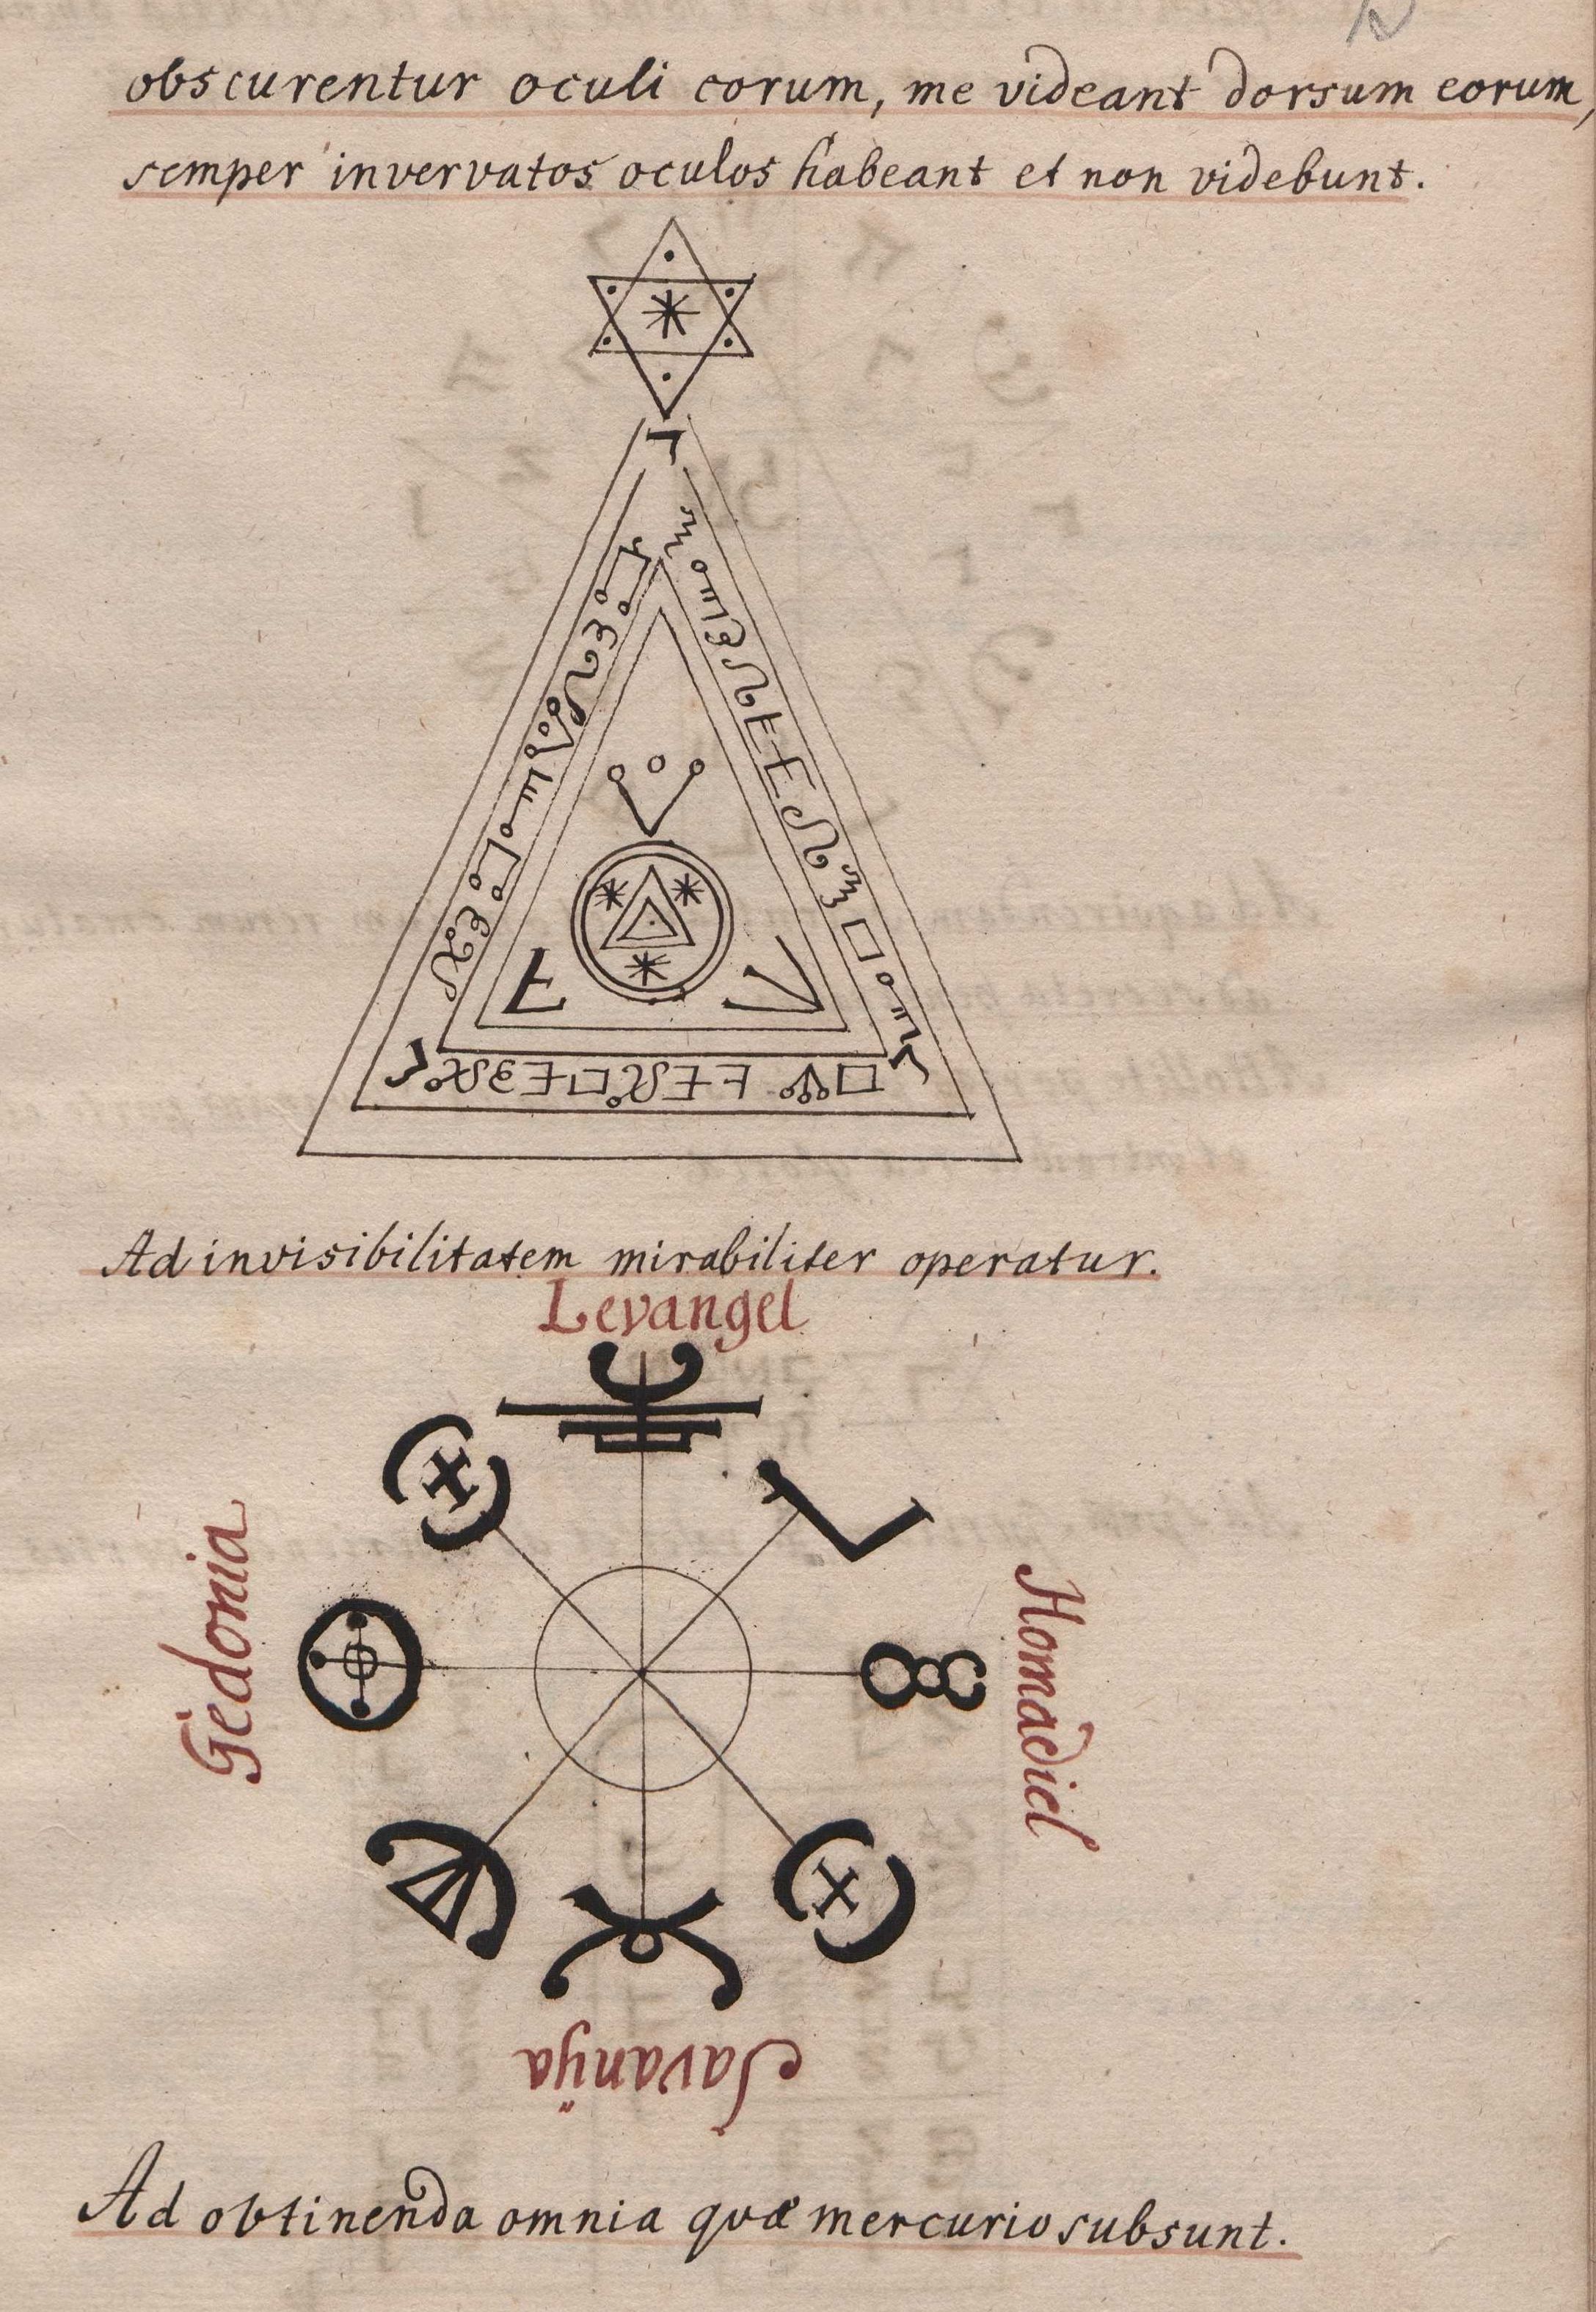 obscurentur oculi eorum, me videant dorsum eorum,
semper invervatos oculos habeant et non videbunt.
Ad invisibilitatem mirabiliter operatur.
Levangel
Gedonia
Homadiel
Savanÿa
Ad obtinenda omnia quæ mercurio subsunt.